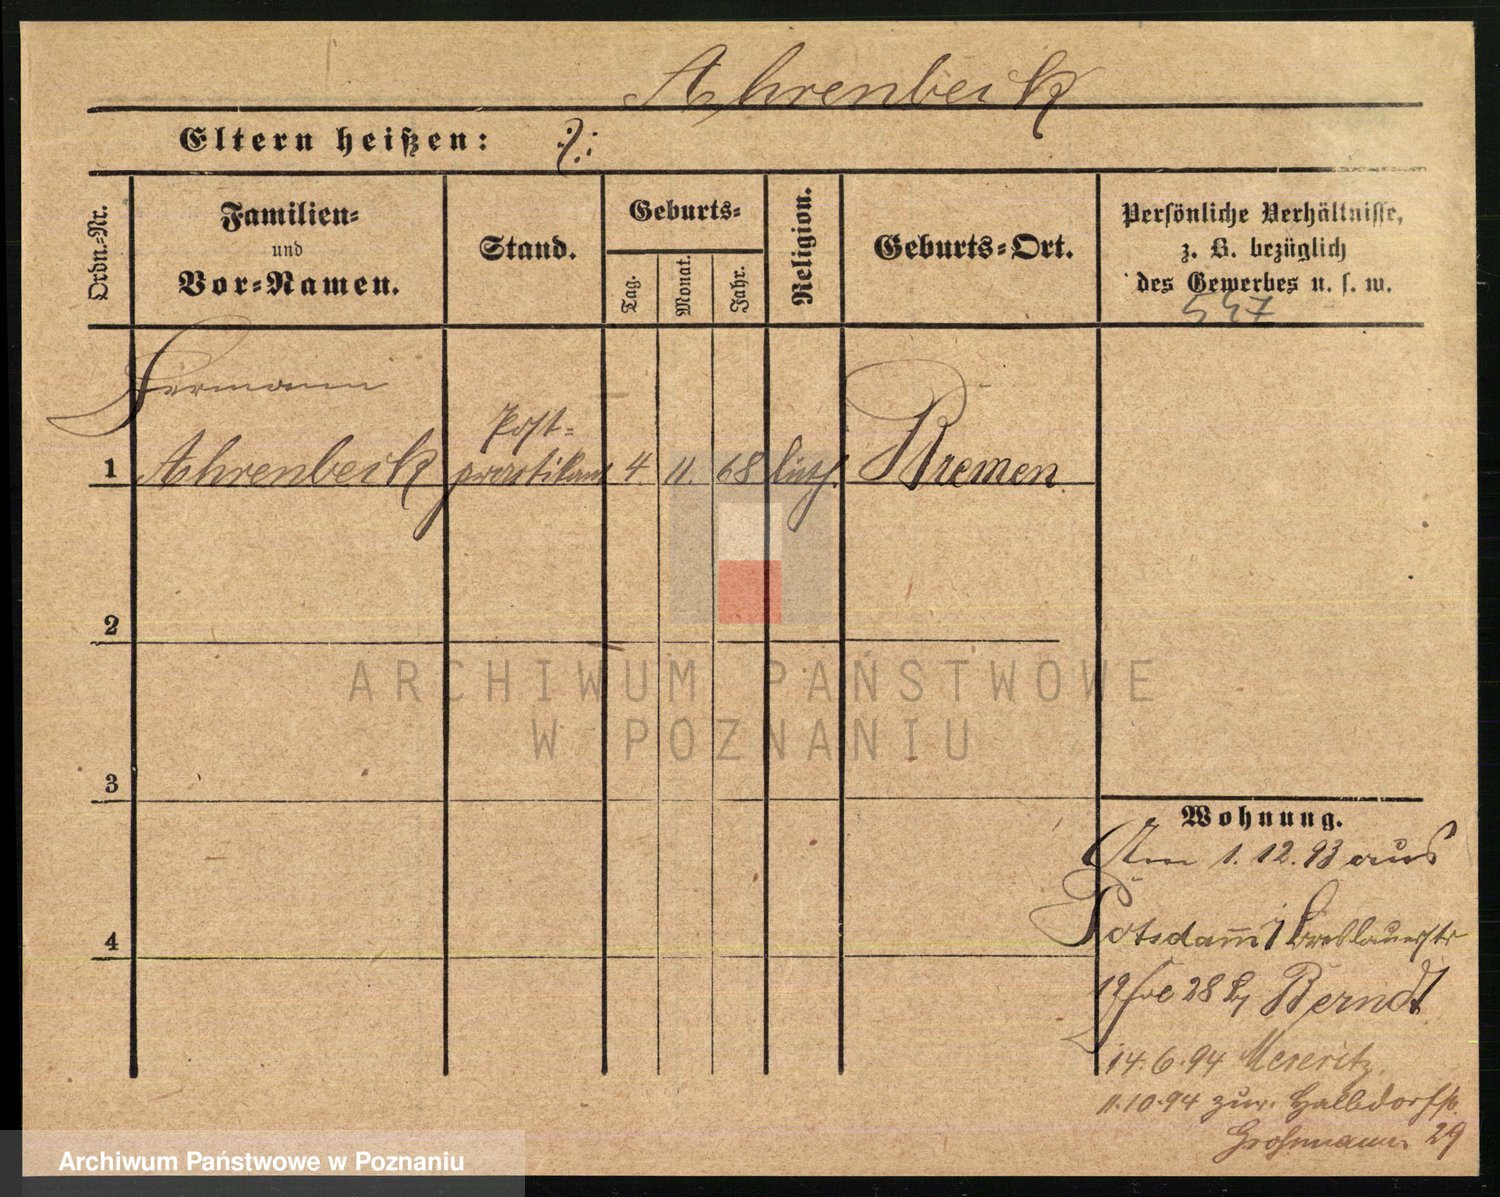 Ahrenbeck
Eltern heißen: ∙/∙
Ordn.-Nr.
Familien-
und
Vor-Namen.
Stand.
Geburts-
Tag.
Monat.
Jahr.
Religion.
Geburts-Ort.
Persönliche Verhältnisse,
z. B. bezüglich
des Gewerbes u. s. w.
547
Hermann
Post-
1 Ahrenbeck praktikant 4. 11. 68 luth. Bremen
2
3
4
ARCHIWUM PAŃSTWOWE
W POZNANIU
Wohnung.
Am 1. 12. 93 aus
Potsdam Breslauerstr
19 28 Berndt
14.6.94 Meseritz.
11.10.94 zur. Halbdorfstr.
Großmann 29
Archiwum Państwowe w Poznaniu